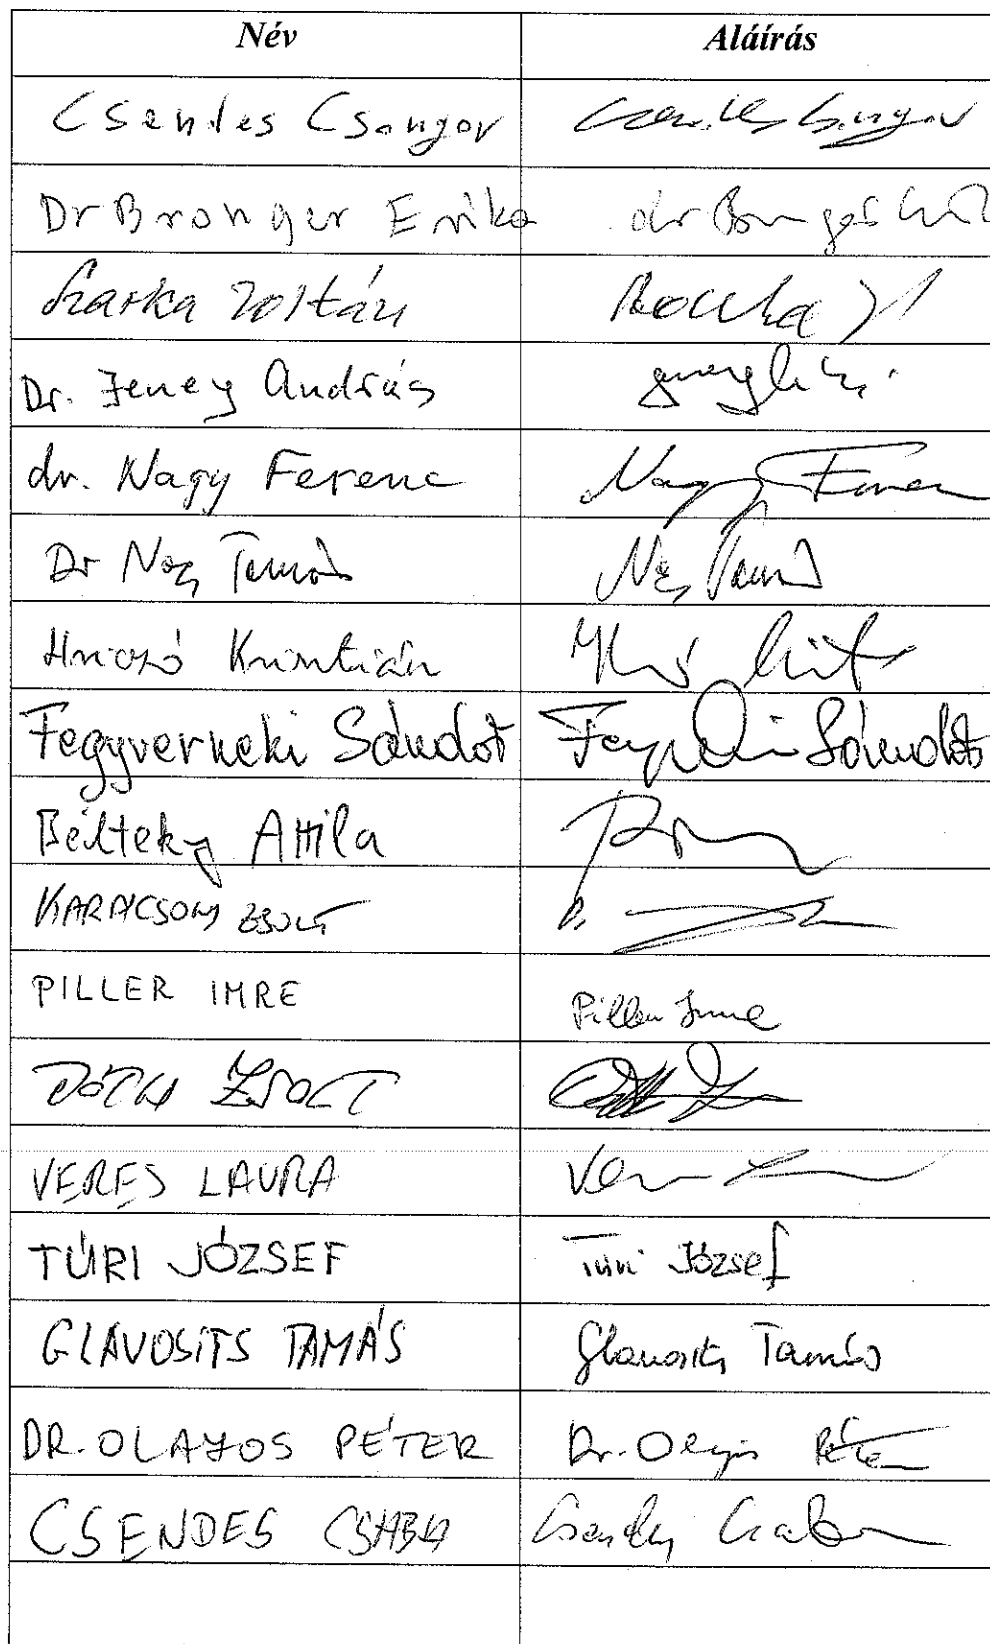 Név Aláírás
Csendes Csongor Csendes Csongor
Dr Bronger Erika dr
Szarka Zoltán Szarka
Dr. Jeney András
dr. Nagy Ferenc Nagy Ferenc
Dr Nagy Tamás Nagy Tamás
Hriczó Krisztián
Fegyverneki Sándor Fegyverneki Sándor
Bélteky Attila
KARÁCSONY ZSOLT
PILLER IMRE Piller Imre
TÓTH ZSOLT
VERES LAURA Veres
TÚRI JÓZSEF Túri József
GLAVOSITS TAMÁS Glavosits Tamás
DR. OLAJOS PÉTER Dr. Olajos Péter
CSENDES CSABA Csendes Csaba